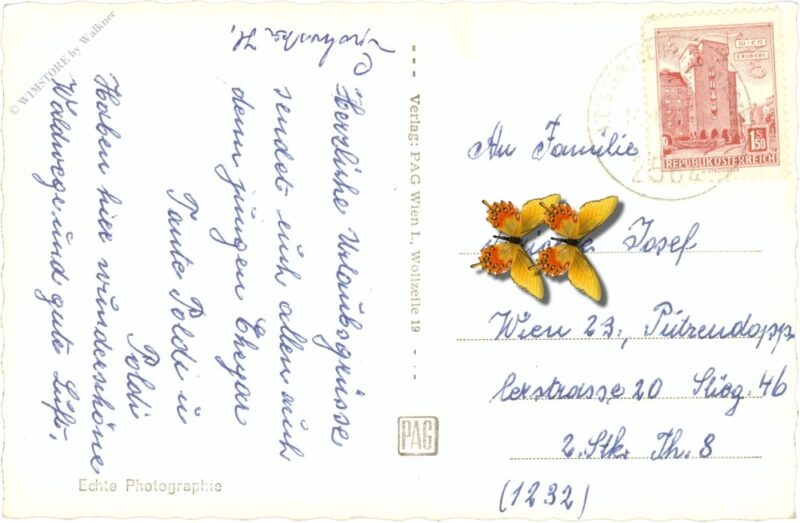 © WIMSTORE by Walkner
Herzliche Urlaubsgrüsse
sendet euch allen auch
dem jungen Ehepar
Tante Poldi u
Poldi
Haben hier wunderschöne
Waldwege und gute Luft.
Verlag: PAG Wien I., Wollzeile 19
PAG
Echte Photographie
WIEN
ERDBERG
1 S 50
REPUBLIK ÖSTERREICH
An Familie
Josef
Wien 23., Pützendopp
lerstrasse 20 Stieg. 46
2. Stk. Th. 8
(1232)